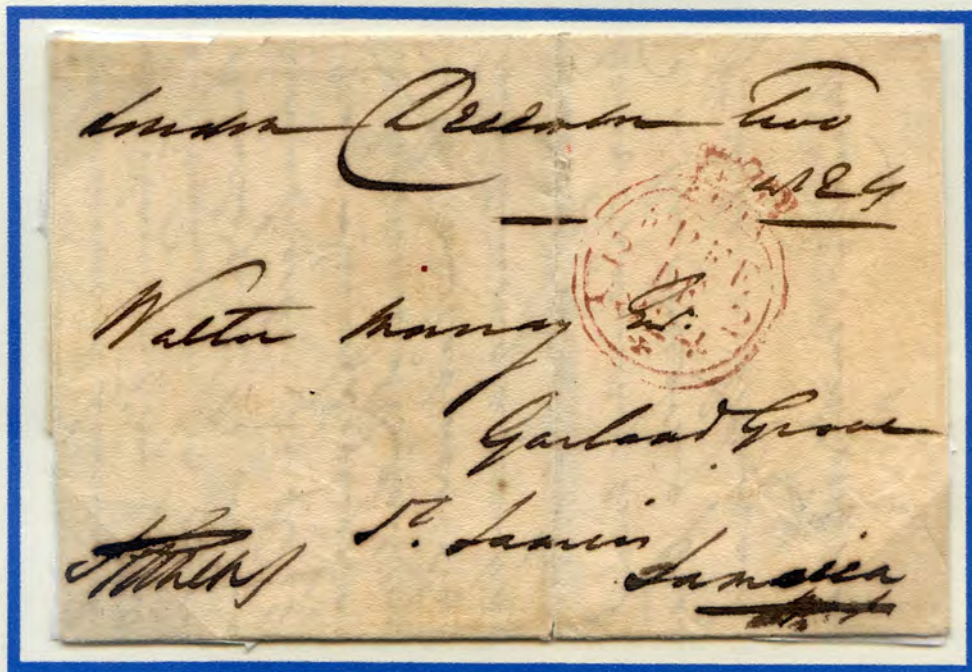 London December Two
1824
Walter Murray Esq.
Garland Grove
St. James
Jamaica